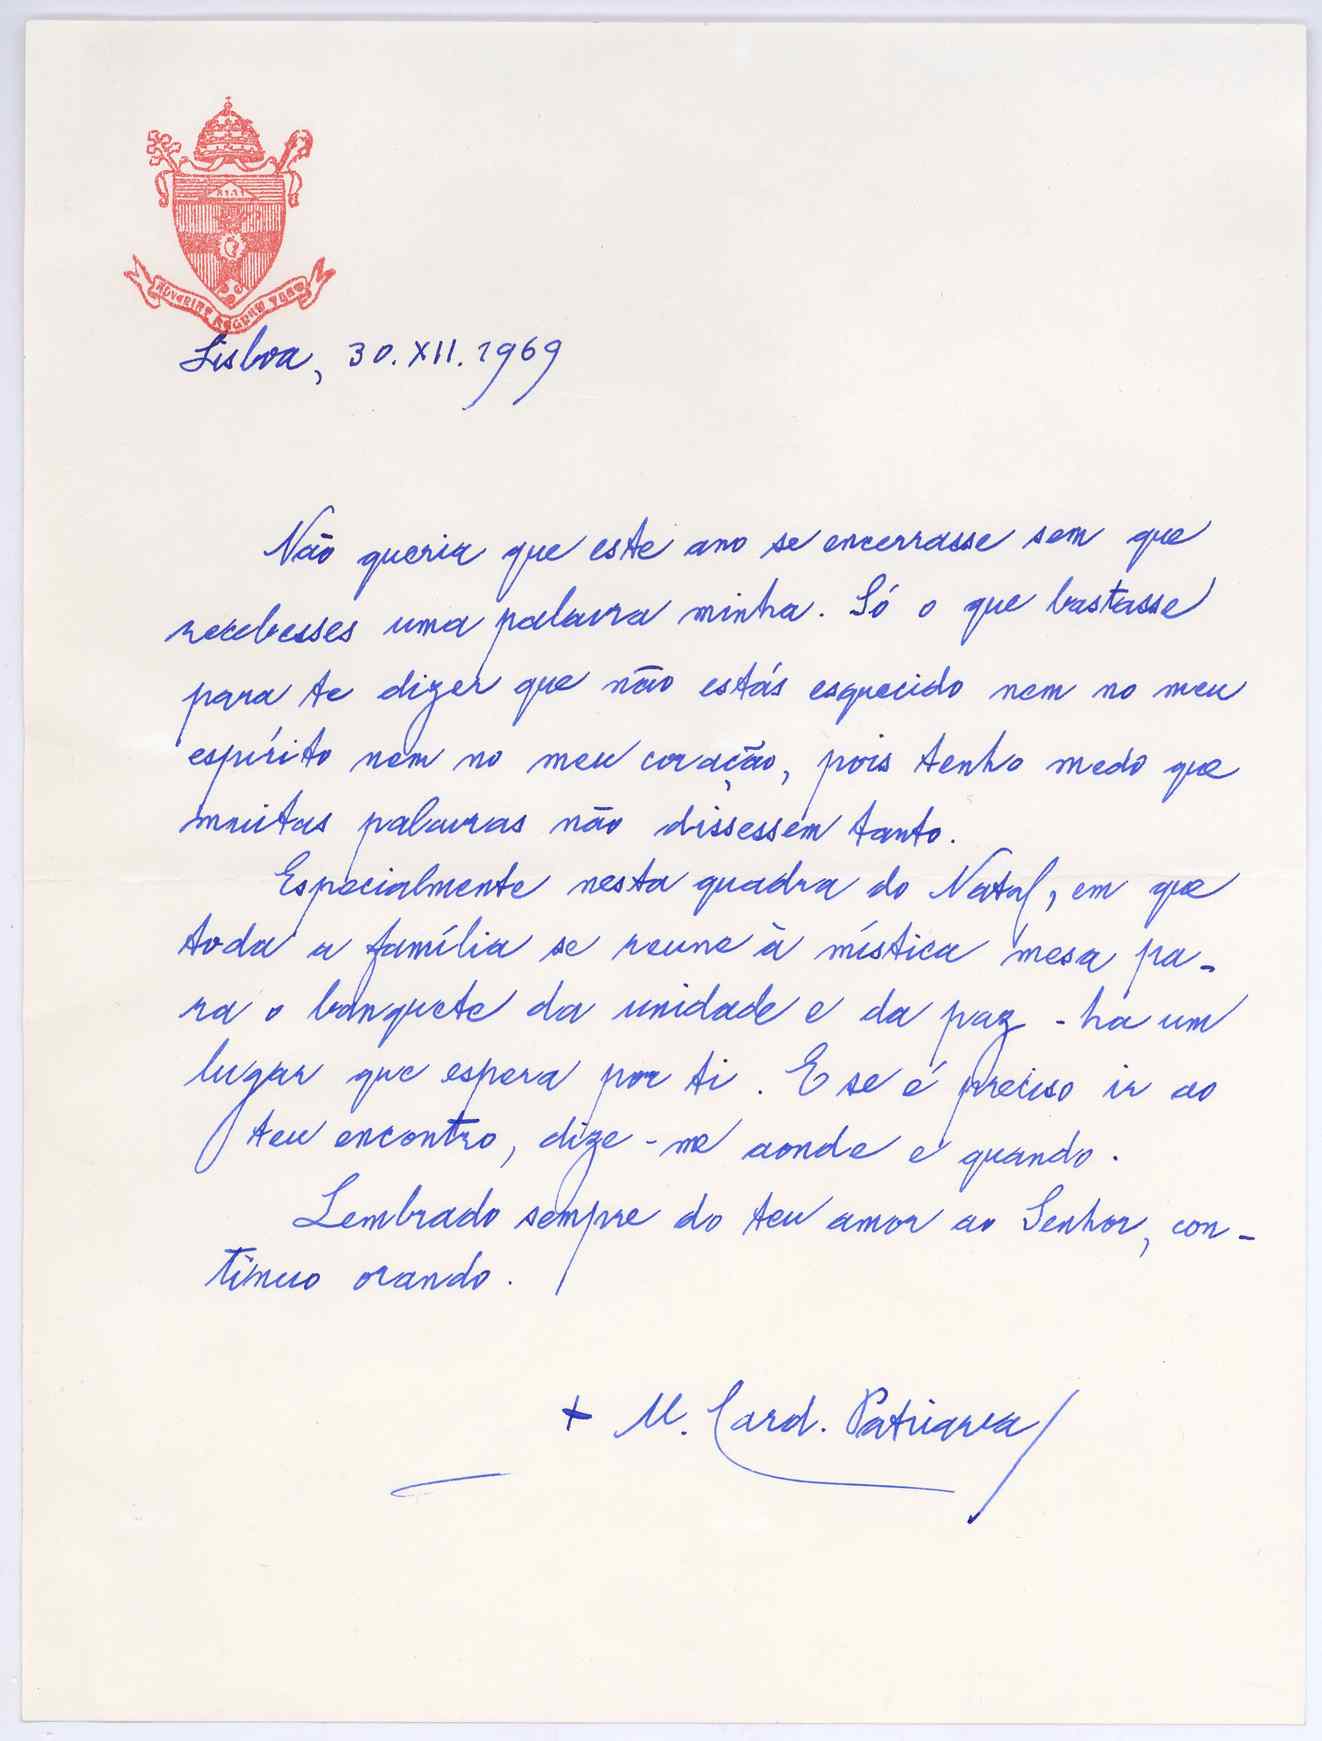 ADVENIAT REGNUM TUUM
Lisboa, 30.XII.1969
Não queria que este ano se encerrasse sem que
recebesses uma palavra minha. Só o que bastasse
para te dizer que não estás esquecido nem no meu
espírito nem no meu coração, pois tenho medo que
muitas palavras não dissessem tanto.
Especialmente nesta quadra do Natal, em que
toda a família se reune à mística mesa pa-
ra o banquete da unidade e da paz - há um
lugar que espera por ti. E se é preciso ir ao
teu encontro, dize-me aonde e quando.
Lembrado sempre do teu amor ao Senhor, con-
tinuo orando.
+ M. Card. Patriarca